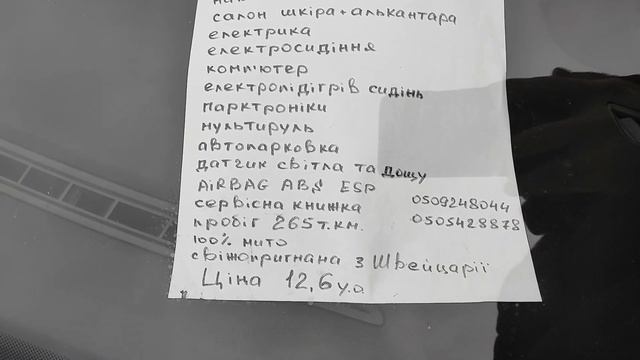 салон шкіра+алькантара
електрика
електросидіння
комп'ютер
електропідігрів сидінь
парктроніки
мультируль
автопарковка
датчик світла та дощу
AiRBAG ABS ESP
сервісна книжка 0509248044
пробіг 265т.км. 0505428878
100% мито
свіжопригнана з Швейцарії
Ціна 12,6 у.о